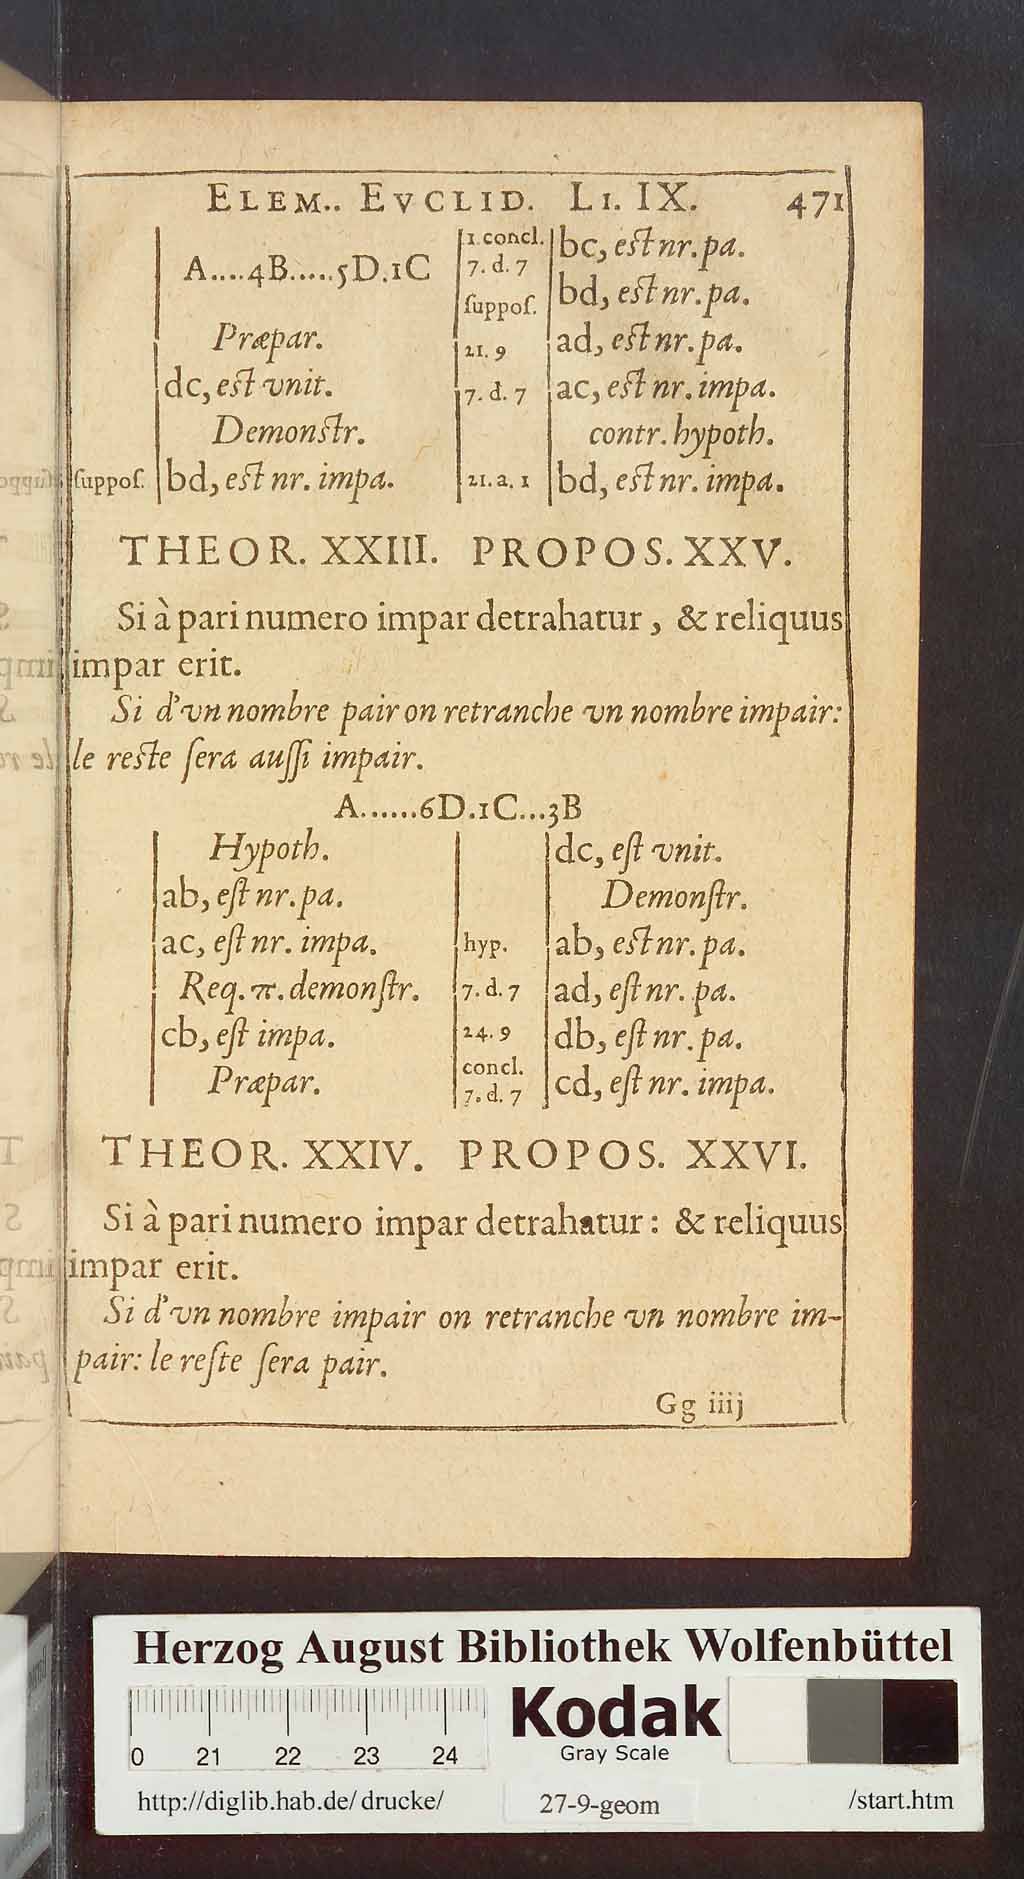 ELEM.. EVCLID. LI. IX. 471
A....4B.....5D.1C
Præpar.
dc, est vnit.
Demonstr.
suppos. bd, est nr. impa.
1.concl. bc, est nr.pa.
7. d. 7
suppos. bd, est nr.pa.
21. 9 ad, est nr.pa.
7. d. 7 ac, est nr. impa.
contr. hypoth.
21. a. 1 bd, est nr. impa.
THEOR. XXIII. PROPOS. XXV.
Si à pari numero impar detrahatur, & reliquus
impar erit.
Si d'vn nombre pair on retranche vn nombre impair:
le reste ſera auſſi impair.
A......6D.1C...3B
Hypoth.
ab, eſt nr.pa.
ac, eſt nr. impa.
Req. π. demonſtr.
cb, eſt impa.
Præpar.
dc, eſt vnit.
Demonſtr.
hyp. ab, est nr. pa.
7. d. 7 ad, eſt nr. pa.
24. 9 db, eſt nr. pa.
concl.
7. d. 7 cd, eſt nr. impa.
THEOR. XXIV. PROPOS. XXVI.
Si à pari numero impar detrahatur: & reliquus
impar erit.
Si d'vn nombre impair on retranche vn nombre im-
pair: le reſte ſera pair.
Gg iiij
Herzog August Bibliothek Wolfenbüttel
0 21 22 23 24
Kodak
Gray Scale
http://diglib.hab.de/ drucke/ 27-9-geom /start.htm